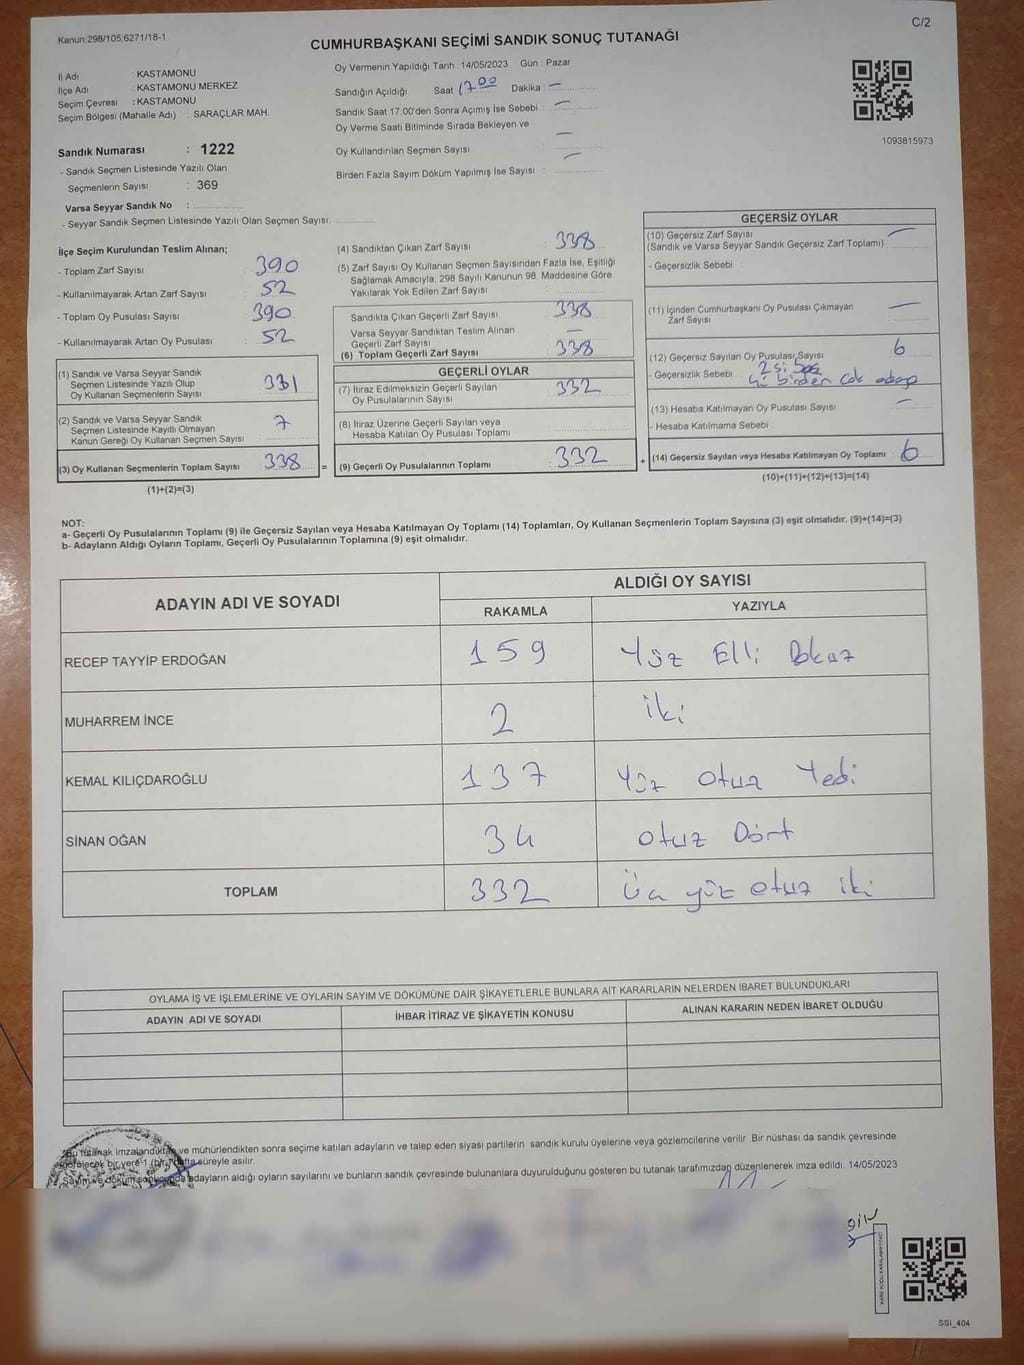 Kanun:298/105;6271/18-1
C/2
CUMHURBAŞKANI SEÇİMİ SANDIK SONUÇ TUTANAĞI
İl Adı : KASTAMONU
İlçe Adı : KASTAMONU MERKEZ
Seçim Çevresi : KASTAMONU
Seçim Bölgesi (Mahalle Adı) : SARAÇLAR MAH.
Sandık Numarası : 1222
- Sandık Seçmen Listesinde Yazılı Olan
Seçmenlerin Sayısı : 369
Varsa Seyyar Sandık No :
- Seyyar Sandık Seçmen Listesinde Yazılı Olan Seçmen Sayısı:
Oy Vermenin Yapıldığı Tarih :14/05/2023 Gün : Pazar
Sandığın Açıldığı Saat 17.00 Dakika : —
Sandık Saat 17:00'den Sonra Açımış İse Sebebi : —
Oy Verme Saati Bitiminde Sırada Bekleyen ve
Oy Kullandırılan Seçmen Sayısı —
Birden Fazla Sayım Döküm Yapılmış İse Sayısı : —
1093815973
İlçe Seçim Kurulundan Teslim Alınan;
- Toplam Zarf Sayısı : 390
- Kullanılmayarak Artan Zarf Sayısı : 52
- Toplam Oy Pusulası Sayısı : 390
- Kullanılmayarak Artan Oy Pusulası : 52
(1) Sandık ve Varsa Seyyar Sandık
Seçmen Listesinde Yazılı Olup
Oy Kullanan Seçmenlerin Sayısı : 331
(2) Sandık ve Varsa Seyyar Sandık
Seçmen Listesinde Kayıtlı Olmayan
Kanun Gereği Oy Kullanan Seçmen Sayısı : 7
(3) Oy Kullanan Seçmenlerin Toplam Sayısı : 338
(1)+(2)=(3)
=
(4) Sandıktan Çıkan Zarf Sayısı : 338
(5) Zarf Sayısı Oy Kullanan Seçmen Sayısından Fazla İse, Eşitliği
Sağlamak Amacıyla; 298 Sayılı Kanunun 98. Maddesine Göre
Yakılarak Yok Edilen Zarf Sayısı :
Sandıkta Çıkan Geçerli Zarf Sayısı : 338
Varsa Seyyar Sandıktan Teslim Alınan
Geçerli Zarf Sayısı : —
(6) Toplam Geçerli Zarf Sayısı : 338
GEÇERLİ OYLAR
(7) İtiraz Edilmeksizin Geçerli Sayılan
Oy Pusulalarının Sayısı : 332
(8) İtiraz Üzerine Geçerli Sayılan veya
Hesaba Katılan Oy Pusulası Toplamı :
(9) Geçerli Oy Pusulalarının Toplamı : 332
+
GEÇERSİZ OYLAR
(10) Geçersiz Zarf Sayısı —
(Sandık ve Varsa Seyyar Sandık Geçersiz Zarf Toplamı)
- Geçersizlik Sebebi :
(11) İçinden Cumhurbaşkanı Oy Pusulası Çıkmayan
Zarf Sayısı —
(12) Geçersiz Sayılan Oy Pusulası Sayısı 6
- Geçersizlik Sebebi : 2 si boş
4ü birden çok adaya
(13) Hesaba Katılmayan Oy Pusulası Sayısı —
- Hesaba Katılmama Sebebi :
(14) Geçersiz Sayılan veya Hesaba Katılmayan Oy Toplamı : 6
(10)+(11)+(12)+(13)=(14)
NOT:
a- Geçerli Oy Pusulalarının Toplamı (9) ile Geçersiz Sayılan veya Hesaba Katılmayan Oy Toplamı (14) Toplamları, Oy Kullanan Seçmenlerin Toplam Sayısına (3) eşit olmalıdır. (9)+(14)=(3)
b- Adayların Aldığı Oyların Toplamı, Geçerli Oy Pusulalarının Toplamına (9) eşit olmalıdır.
ADAYIN ADI VE SOYADI ALDIĞI OY SAYISI
RAKAMLA YAZIYLA
RECEP TAYYİP ERDOĞAN 159 Yüz Elli Dokuz
MUHARREM İNCE 2 iki
KEMAL KILIÇDAROĞLU 137 Yüz Otuz Yedi
SİNAN OĞAN 34 Otuz Dört
TOPLAM 332 Üç yüz otuz iki
OYLAMA İŞ VE İŞLEMLERİNE VE OYLARIN SAYIM VE DÖKÜMÜNE DAİR ŞİKAYETLERLE BUNLARA AİT KARARLARIN NELERDEN İBARET BULUNDUKLARI
ADAYIN ADI VE SOYADI İHBAR İTİRAZ VE ŞİKAYETİN KONUSU ALINAN KARARIN NEDEN İBARET OLDUĞU
Bu tutanak imzalandıktan ve mühürlendikten sonra seçime katılan adayların ve talep eden siyasi partilerin sandık kurulu üyelerine veya gözlemcilerine verilir Bir nüshası da sandık çevresinde
görülecek bir yere 1 (bir) hafta süreyle asılır.
Sayım ve döküm sonucunda adayların aldığı oyların sayılarını ve bunların sandık çevresinde bulunanlara duyurulduğunu gösteren bu tutanak tarafımızdan düzenlenerek imza edildi. 14/05/2023
SSI_404